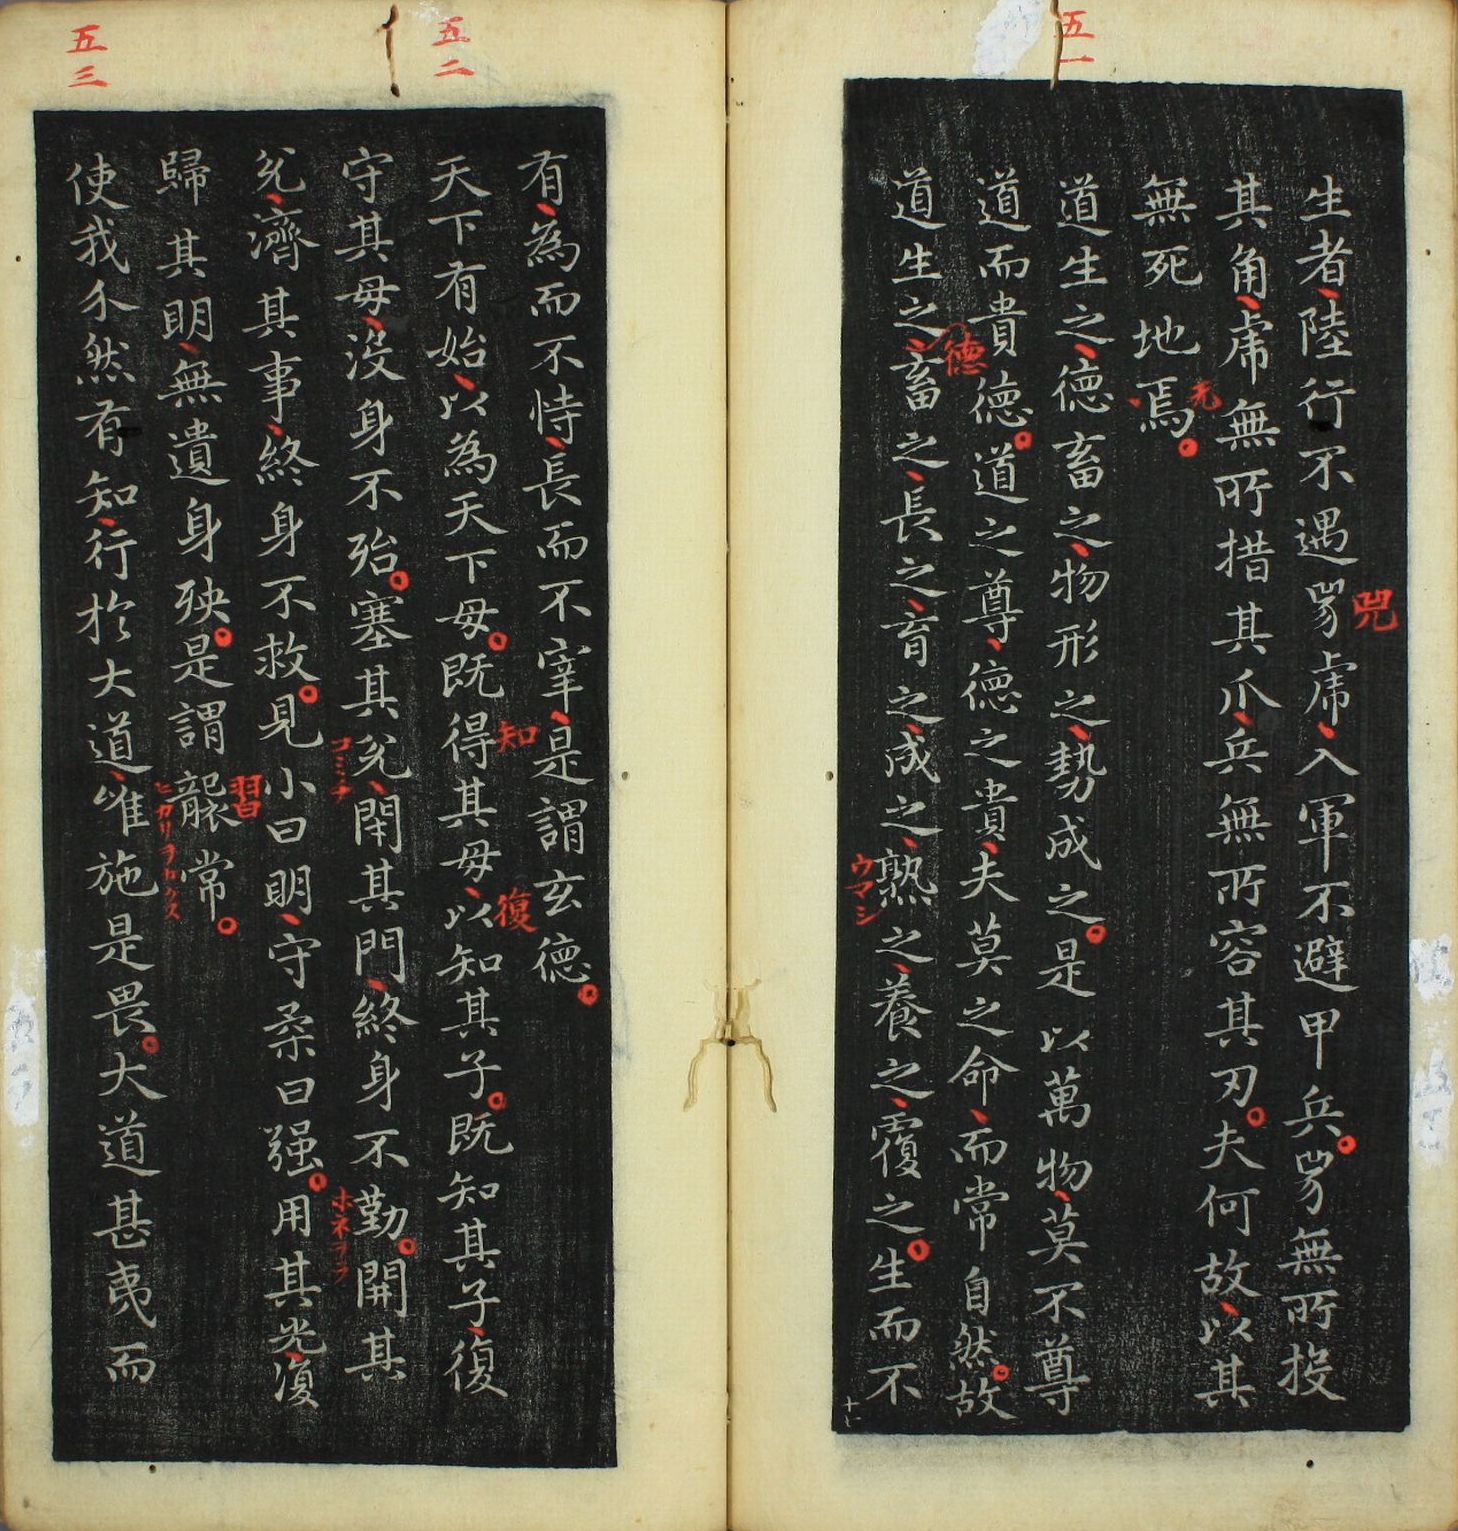 五一
生者陸行不遇兕虎入軍不避甲兵兕無所投
兕
其角虎無所措其爪兵無所容其刃夫何故以其
無死地焉
无
道生之德畜之物形之勢成之是以萬物莫不尊
道而貴德道之尊德之貴夫莫之命而常自然故
道生之畜之長之育之成之熟之養之覆之生而不
德
ウマシ
十七
五二
有為而不恃長而不宰是謂玄德
天下有始以為天下母既得其母以知其子既知其子復
知
復
守其母没身不殆塞其兊閇其門終身不勤開其
コミチ
ホネヲラ
兊濟其事終身不救見小曰明守柔曰强用其光復
歸其明無遺身殃是謂襲常
習
ヒカリヲカクス
五三
使我介然有知行於大道唯施是畏大道甚夷而